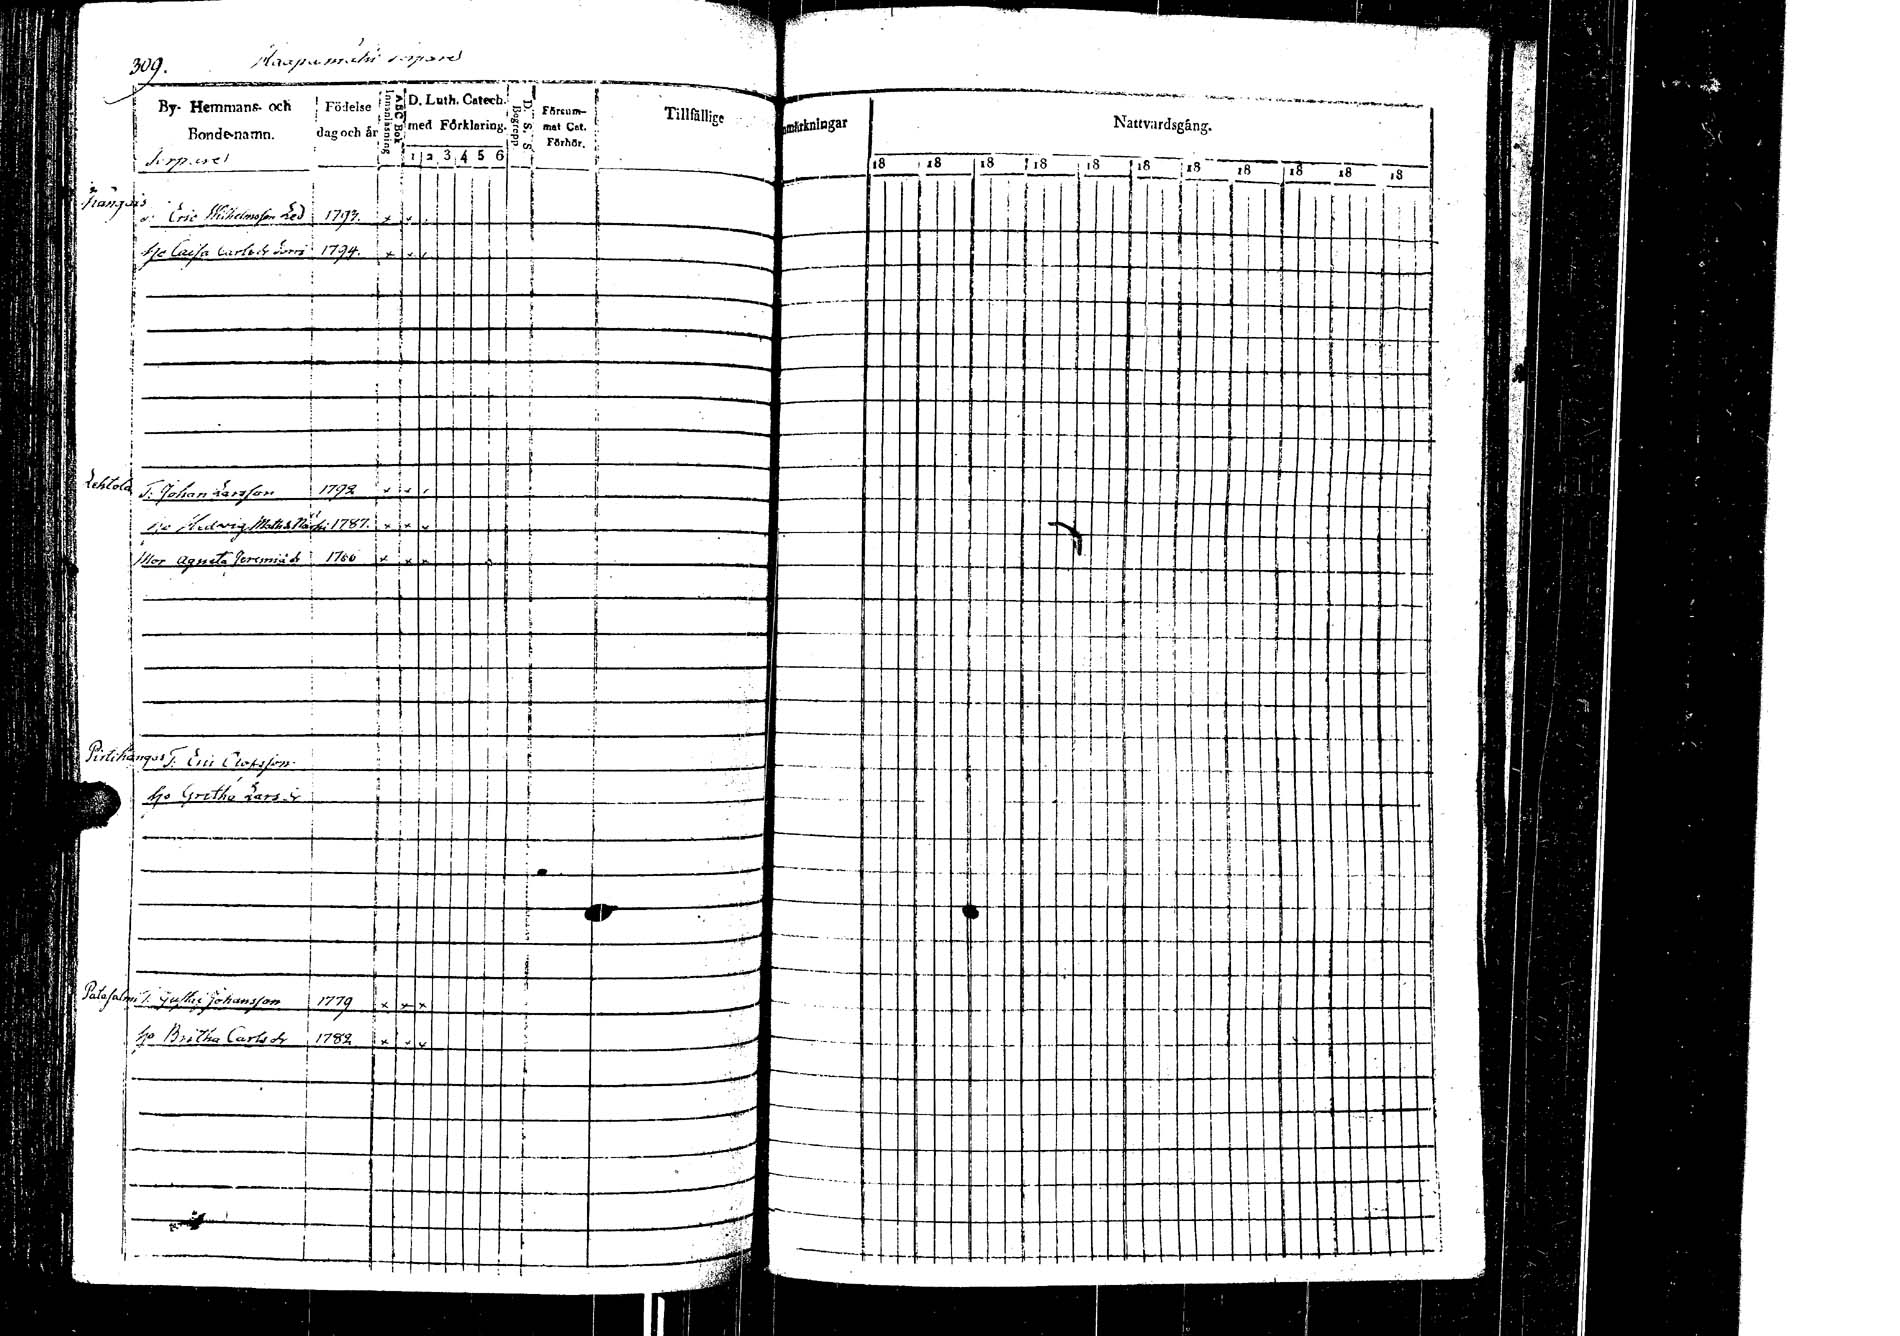 309. Haapamäki torpare
By- Hemmans- och Bonde-namn.
Födelse dag och år
Innanläsning
ABC Bok
D. Luth. Catech. med Förklaring.
1 2 3 4 5 6
D. S. S. Begrepp
Försum-mat Cat. Förhör.
Tillfällige
nmärkningar
Nattvardsgång.
18 18 18 18 18 18 18 18 18 18 18
Torpare
Eric Wilhelmsson Led 1793. x x
Caisa Carlsdr 1794. x x
Lehtola T. Johan Larsson 1792 x x
Hedvig Matsdr 1787. x x x
Mor Agneta Jeremiædr x x x
Pirttikangas T. Eric Olofsson
Gretha Larsdr
Patasalmi T. Gustaf Johansson 1779 x x x
Britha Carlsdr 1782 x x x